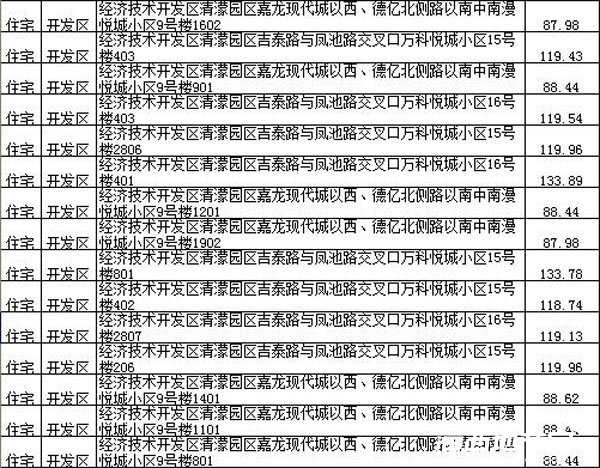 住宅 开发区 经济技术开发区清濛园区嘉龙现代城以西、德亿北侧路以南中南漫悦城小区9号楼1602 87.98
住宅 开发区 经济技术开发区清濛园区吉泰路与凤池路交叉口万科悦城小区15号楼403 119.43
住宅 开发区 经济技术开发区清濛园区嘉龙现代城以西、德亿北侧路以南中南漫悦城小区9号楼901 88.44
住宅 开发区 经济技术开发区清濛园区吉泰路与凤池路交叉口万科悦城小区16号楼403 119.54
住宅 开发区 经济技术开发区清濛园区吉泰路与凤池路交叉口万科悦城小区15号楼2806 119.96
住宅 开发区 经济技术开发区清濛园区吉泰路与凤池路交叉口万科悦城小区16号楼401 133.89
住宅 开发区 经济技术开发区清濛园区嘉龙现代城以西、德亿北侧路以南中南漫悦城小区9号楼1201 88.44
住宅 开发区 经济技术开发区清濛园区嘉龙现代城以西、德亿北侧路以南中南漫悦城小区9号楼1902 87.98
住宅 开发区 经济技术开发区清濛园区吉泰路与凤池路交叉口万科悦城小区15号楼801 133.78
住宅 开发区 经济技术开发区清濛园区吉泰路与凤池路交叉口万科悦城小区15号楼402 118.74
住宅 开发区 经济技术开发区清濛园区吉泰路与凤池路交叉口万科悦城小区16号楼2807 119.13
住宅 开发区 经济技术开发区清濛园区吉泰路与凤池路交叉口万科悦城小区15号楼206 119.96
住宅 开发区 经济技术开发区清濛园区嘉龙现代城以西、德亿北侧路以南中南漫悦城小区9号楼1401 88.62
住宅 开发区 经济技术开发区清濛园区嘉龙现代城以西、德亿北侧路以南中南漫悦城小区9号楼1101
住宅 开发区 经济技术开发区清濛园区嘉龙现代城以西、德亿北侧路以南中南漫悦城小区9号楼801 88.44